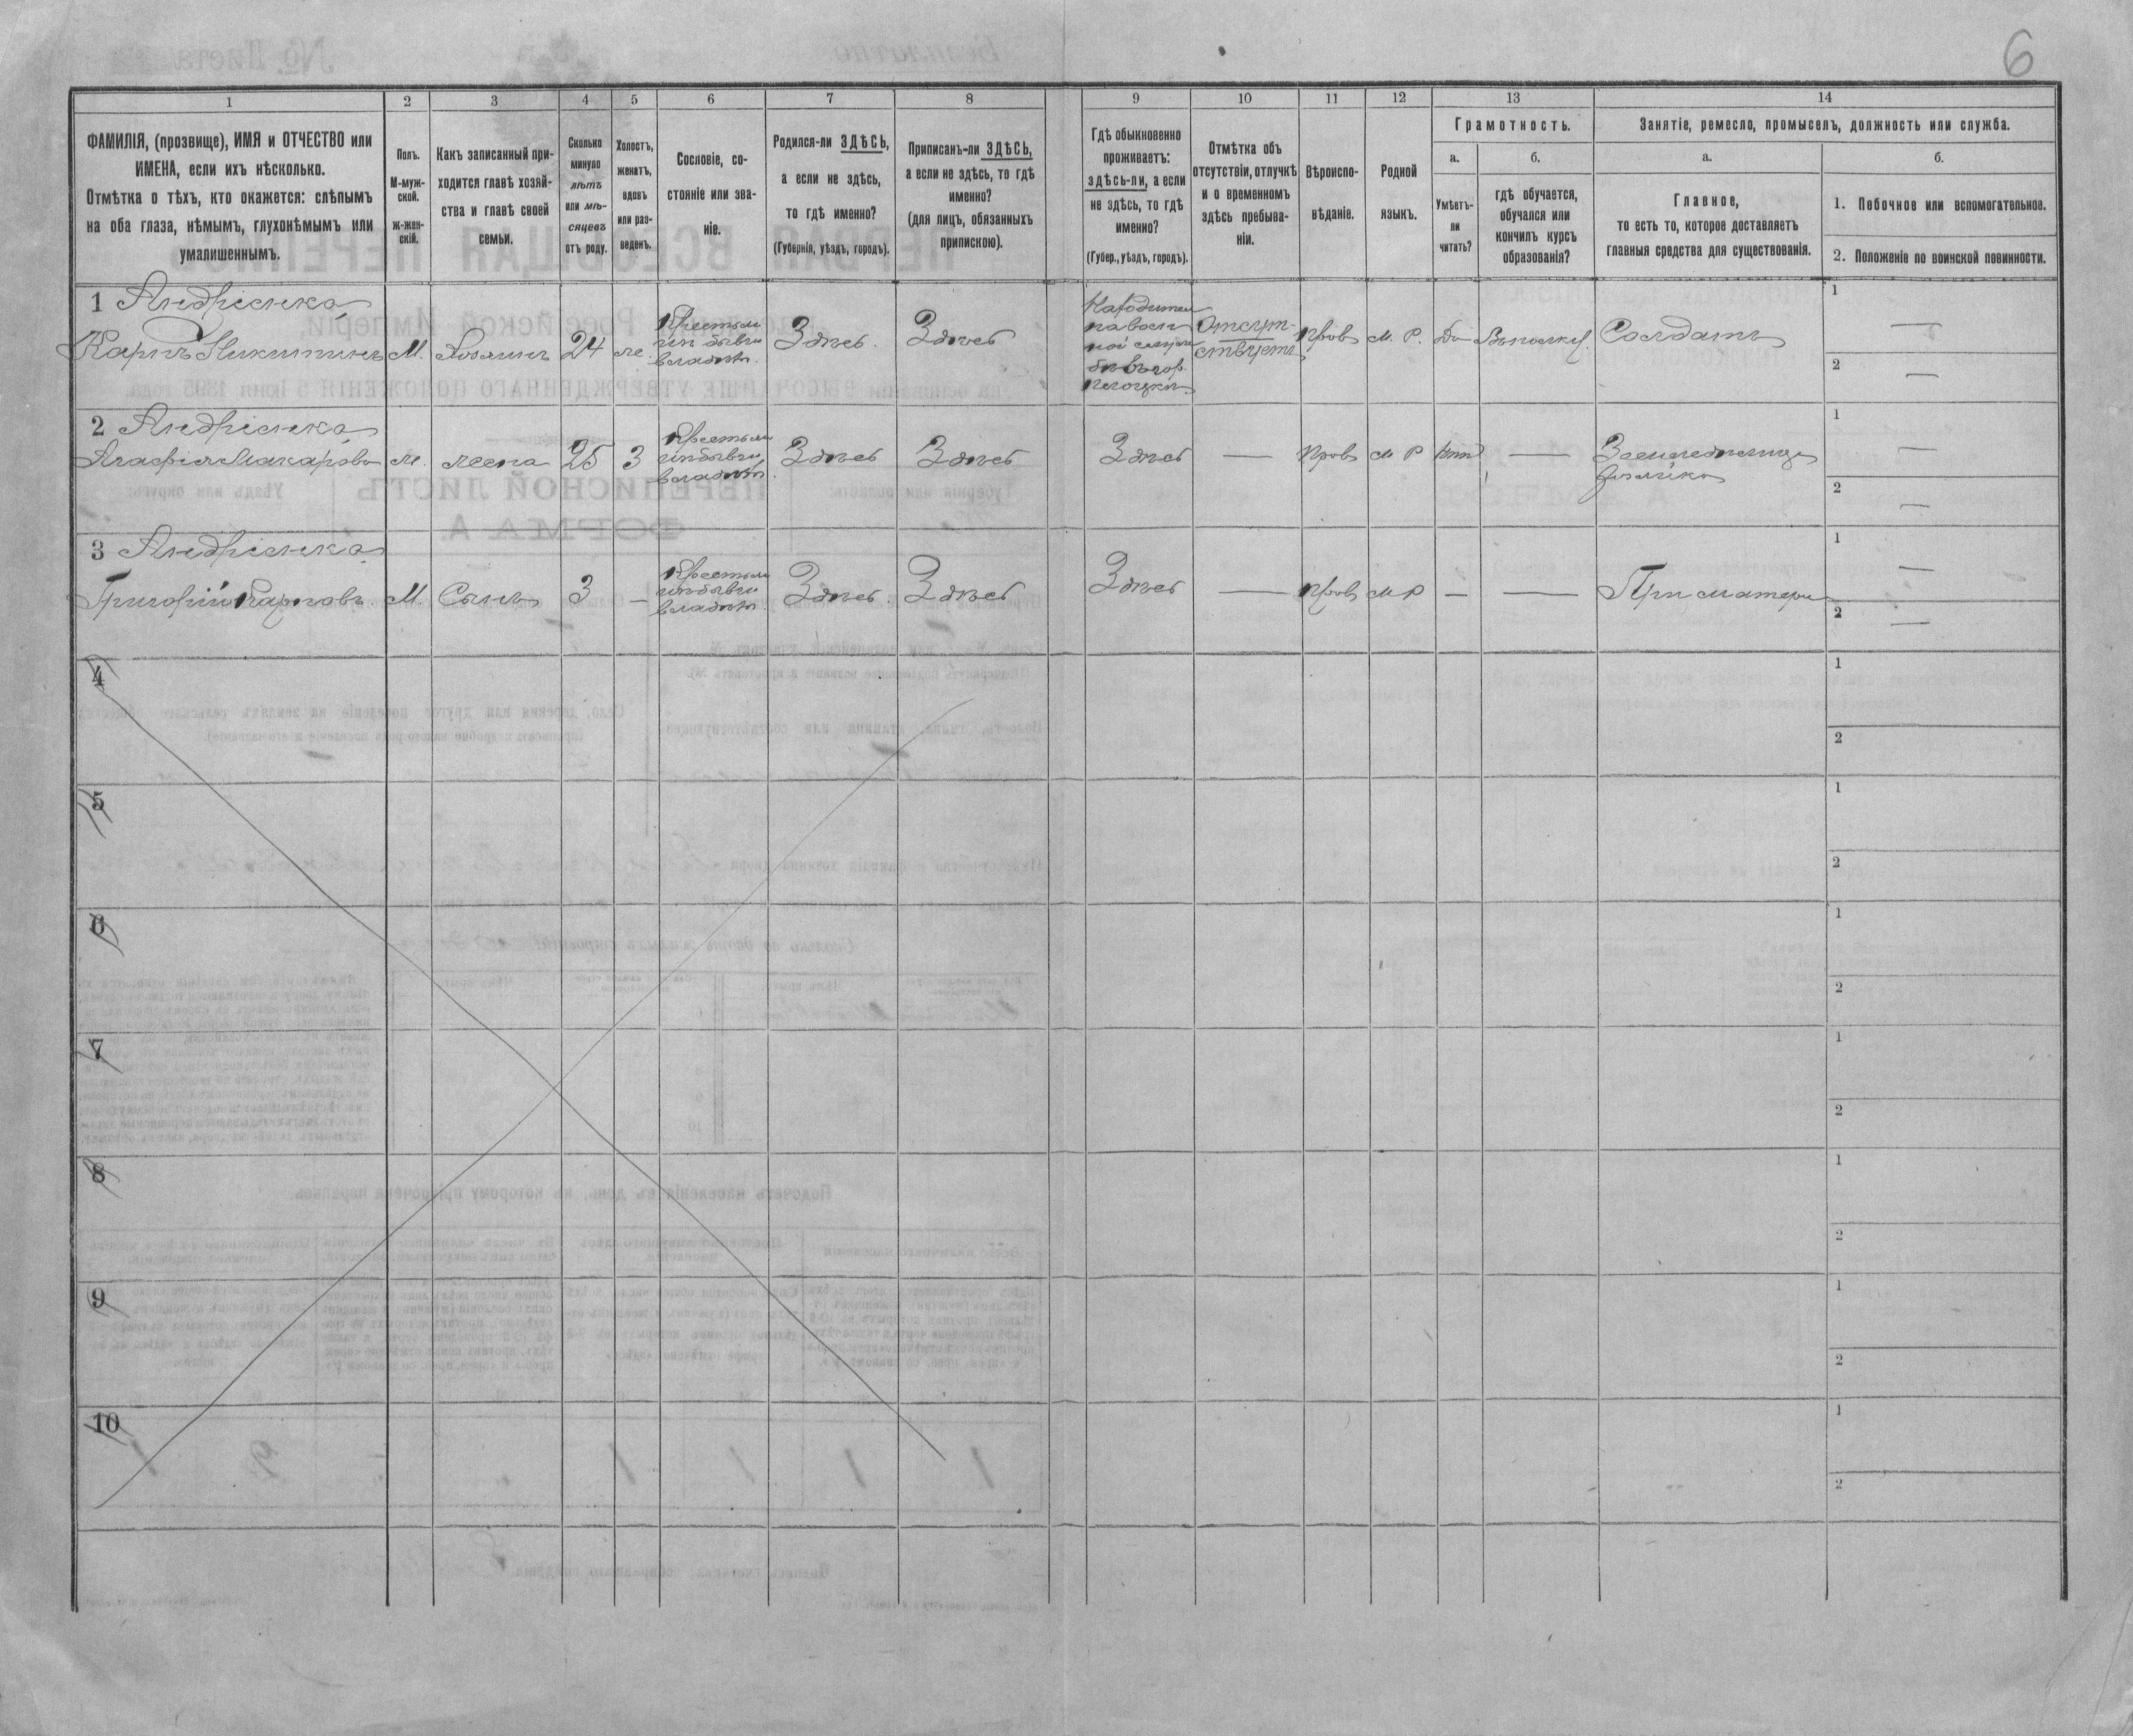 6
1
2
3
4
5
6
7
8
9
10
11
12
13
14
ФАМИЛІЯ, (прозвище), ИМЯ и ОТЧЕСТВО или
ИМЕНА, если ихъ нѣсколько.
Отмѣтка о тѣхъ, кто окажется: слѣпымъ
на оба глаза, нѣмымъ, глухонѣмымъ или
умалишеннымъ.
Полъ.
М-муж-
ской.
ж-жен-
скій.
Какъ записанный при-
ходится главѣ хозяй-
ства и главѣ своей
семьи.
Сколько
минуло
лѣтъ
или мѣ-
сяцевъ
отъ роду.
Холостъ,
женатъ,
вдовъ
или раз-
веденъ.
Сословіе, со-
стояніе или зва-
ніе.
Родился-ли ЗДѢСЬ,
а если не здѣсь,
то гдѣ именно?
(Губернія, уѣздъ, городъ).
Приписанъ-ли ЗДѢСЬ,
а если не здѣсь, то гдѣ
именно?
(для лицъ, обязанныхъ
припискою).
Гдѣ обыкновенно
проживаетъ:
здѣсь-ли, а если
не здѣсь, то гдѣ
именно?
(Губер., уѣздъ, городъ).
Отмѣтка объ
отсутствіи, отлучкѣ
и о временномъ
здѣсь пребыва-
ніи.
Вѣроиспо-
вѣданіе.
Родной
языкъ.
Грамотность.
а.
Умѣетъ-
ли
читать?
б.
гдѣ обучается,
обучался или
кончилъ курсъ
образованія?
Занятіе, ремесло, промыселъ, должность или служба.
а.
Главное,
то есть то, которое доставляетъ
главныя средства для существованія.
б.
1. Побочное или вспомогательное.
2. Положеніе по воинской повинности.
1 Андріенко
Карпъ Никитинъ
М.
Хозяинъ
24
же.
Крестьян
изъ бывш
владѣл.
Здѣсь.
Здѣсь
Находится
на воен
ной служ
бѣ въ гор.
Отсут-
ствуетъ
Прав
М. Р.
Да
Солдатъ
1 —
2 —
2 Андріенко
Агафія Макарова
ж.
жена
25
З
Крестьян
изъ бывш
владѣл.
Здѣсь
Здѣсь
Здѣсь
—
Прав
М Р
Нѣт
—
Земледѣлица
хозяйка
1 —
2 —
3 Андріенко
Григорій Карповъ
М.
Сынъ
3
—
Крестьян
изъ бывш
владѣл.
Здѣсь.
Здѣсь
Здѣсь
—
Прав
М Р
—
—
При матери
1 —
2 —
4
1
2
5
1
2
6
1
2
7
1
2
8
1
2
9
1
2
10
1
2